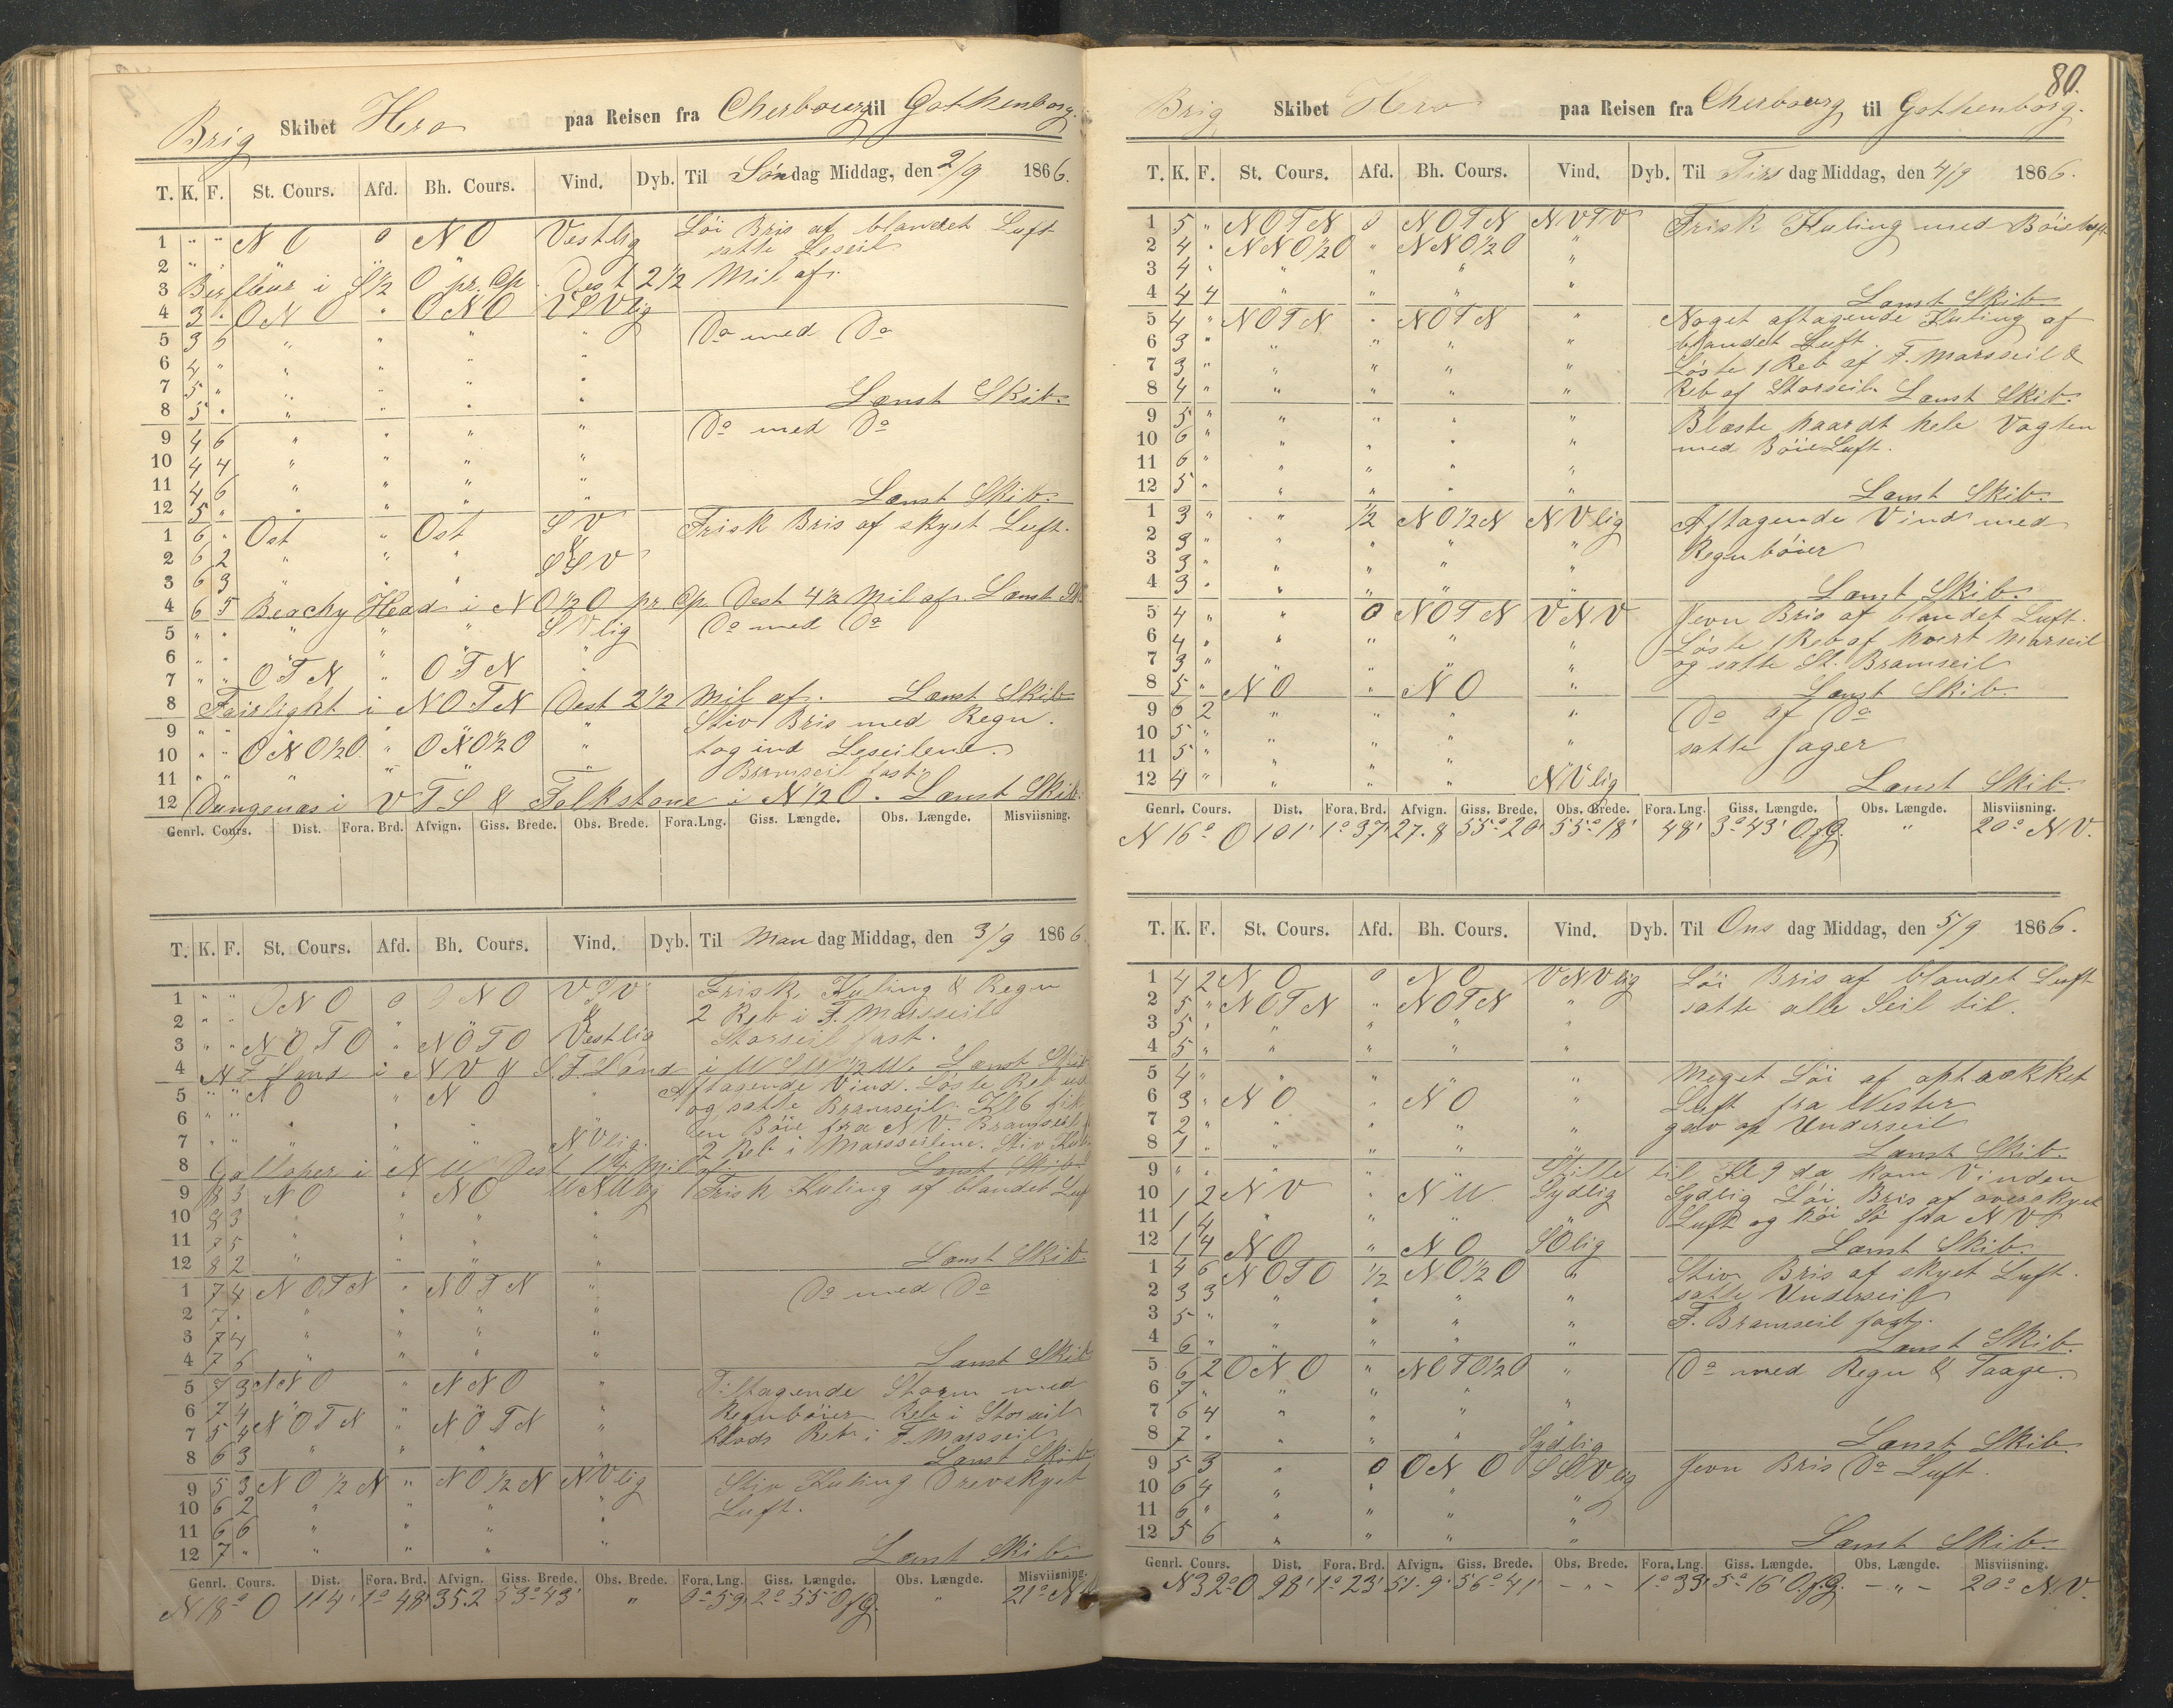 Brig Skibet Hero paa Reisen fra Cherbourg til Gothenborg.
T. K. F. St. Cours. Afd. Bh. Cours. Vind. Dyb. Til Søndag Middag, den 2/9 1866.
1 " " N O 0 N O Vestlig Løi Bris af blandet Luft
2 " " " " " satte Leseil
3 Barfleur i S 1/2 O pr. Cp. Dest 2 1/2 Mil af.
4 3 " O N O " O N O VSVlig
5 3 6 " " " " Do med Do
6 4 " " " " "
7 5 " " " " "
8 5 " " " " " Lænst Skib.
9 4 6 " " " " Do med Do
10 4 4 " " " "
11 4 6 " " " "
12 5 " " " " " Lænst Skib.
1 6 " Ost " Ost S V Frisk Bris af skyet Luft.
2 6 2 " " " SSV
3 6 3 " " "
4 6 5 Beachy Head i N O 1/2 O pr Cp. Dest 4 1/2 Mil af. Lænst
5 " " " " " SVlig Do med Do
6 " " " " " "
7 " " O T N " O T N "
8 Fairlight i N O T N Dest 2 1/2 Mil af. Lænst Skib
9 " " " Stiv Bris med Regn.
10 " " O N O 1/2 O " O N O 1/2 O " tog ind Leseilene.
11 " " " " " " Bramseil fast.
12 Dungenæs i V T S & Folkstone i N 1/2 O. Lænst Skib.
Genrl. Cours. Dist. Fora. Brd. Afvign. Giss. Brede. Obs. Brede. Fora. Lng. Giss. Længde. Obs. Længde. Misviisning.
T. K. F. St. Cours. Afd. Bh. Cours. Vind. Dyb. Til Mandag Middag, den 3/9 1866
1 " " O N O 0 O N O V S V Frisk Kuling & Regn
2 " " " " " " 2 Reb i F. Marsseil
3 " " N O T O " N O T O Vestlig Storseil fast.
4 N. F. Land i N V & S. F. Land i Lænst Skib
5 " " N O " N O " Aftagende Vind. Løste Reb ud
6 " " " " " " og satte Bramseil. Kl 6 fik
en Bøie fra N V. Bramseil
7 " " " " " NVlig. 2 Reb i Marsseilene. Stiv
8 Galloper i N W Dest 1 1/4 Mil af. Lænst Skib
9 8 3 N O " N O WNWlig Frisk Kuling af blandet Luf
10 8 3 " " " "
11 7 5 " " " "
12 8 2 " " " " Lænst Skib.
1 7 4 N O T N " N O T N " Do med Do
2 7 " " " " "
3 7 4 " " " "
4 7 6 " " " " Lænst Skib
5 7 3 N N O " N N O " Tiltagende Storm med
6 7 4 " " " " Regnbøier Reb i Storseil
7 5 4 N O T N " N O T N " Klods Reb i F. Marsseil
8 6 3 " " " " Lænst Skib
9 5 3 N O 1/2 N " N O 1/2 N NVlig Stiv Kuling Overskyet
10 6 2 " " " " Luft.
11 6 6 " " " "
12 7 " " " " " Lænst Skib.
Genrl. Cours. Dist. Fora. Brd. Afvign. Giss. Brede. Obs. Brede. Fora. Lng. Giss. Længde. Obs. Længde. Misviisning.
N 18° O 114' 1° 48' 35.2 53° 43' " 0° 59' 2° 55' O f G. " 21° N
80.
Brig Skibet Hero paa Reisen fra Cherbourg til Gothenborg.
T. K. F. St. Cours. Afd. Bh. Cours. Vind. Dyb. Til Tirsdag Middag, den 4/9 1866.
1 5 " N O T N 0 N O T N N V T V Frisk Kuling med Bøieluft
2 4 " N N O 1/2 O " N N O 1/2 O "
3 4 " " " " "
4 4 4 " " " " Lænst Skib
5 4 " N O T N " N O T N " Noget aftagende Kuling af
6 3 " " " " " blandet Luft.
7 3 " " " " " Løste 1 Reb af F. Marsseil &
8 4 " " " " " Reb af Storseil. Lænst Skib.
9 5 " " " " " Blæste haardt hele Vagten
10 6 " " " " " med Bøie Luft.
11 6 " " " " "
12 5 " " " " " Lænst Skib.
1 3 " " 1/2 N O 1/2 N N Vlig Aftagende Vind med
2 3 " " " " " Regnbøier
3 3 " " " " "
4 3 " " " " " Lænst Skib.
5 4 " " 0 N O T N V N V Jevn Bris af blandet Luft.
6 4 " " " " " Løste 1 Reb af hvert Marsseil
7 3 " " " " " og satte St. Bramseil
8 5 " N O " N O " Lænst Skib.
9 6 2 " " " " Do af Do
10 5 " " " " " satte Jager
11 5 " " " " "
12 4 " " " " NVlig Lænst Skib.
Genrl. Cours. Dist. Fora. Brd. Afvign. Giss. Brede. Obs. Brede. Fora. Lng. Giss. Længde. Obs. Længde. Misviisning.
N 16° O 101' 1° 37' 27.8 55° 20' 55° 18' 48' 3° 43' O. f G. " 20° N V.
T. K. F. St. Cours. Afd. Bh. Cours. Vind. Dyb. Til Onsdag Middag, den 5/9 1866.
1 4 2 N O 0 N O VNVlig Løi Bris af blandet Luft
2 5 " N O T N " N O T N " satte alle Seil til.
3 5 " " " " "
4 5 " " " "
5 4 " " " " " Meget Løi af optrækket
6 3 " N O " N O " Luft fra Wester
7 2 " " " " " gav op Underseil
8 1 " " " " " Lænst Skib.
9 " " " " " Stille til Kl 9 da kom Vinden
10 1 2 N V " N W Sydlig Sydlig Løi Bris af overskyet
11 1 4 " " " " Luft og høi Sø fra N V.
12 1 4 N O " N O SOlig Lænst Skib.
1 4 6 N O T O 1/2 N O 1/2 O " Stiv Bris af skyet Luft.
2 3 3 " " " " satte Underseil
3 5 " " " " " F. Bramseil fast.
4 6 " " " " " Lænst Skib.
5 6 2 O N O " N O T O 1/2 O " Do med Regn & Taage.
6 7 " " " " "
7 6 4 " " " "
8 7 " " " " Sydlig Lænst Skib.
9 5 3 " 0 O N O SSVlig Jevn Bris Do Luft.
10 6 4 " " " "
11 6 " " " " "
12 5 6 " " " " Lænst Skib.
Genrl. Cours. Dist. Fora. Brd. Afvign. Giss. Brede. Obs. Brede. Fora. Lng. Giss. Længde. Obs. Længde. Misviisning.
N 32° O 98' 1° 23' 51.9' 56° 41' - " - 1° 33' 5° 16' O. f G. - " - 20° N. V.